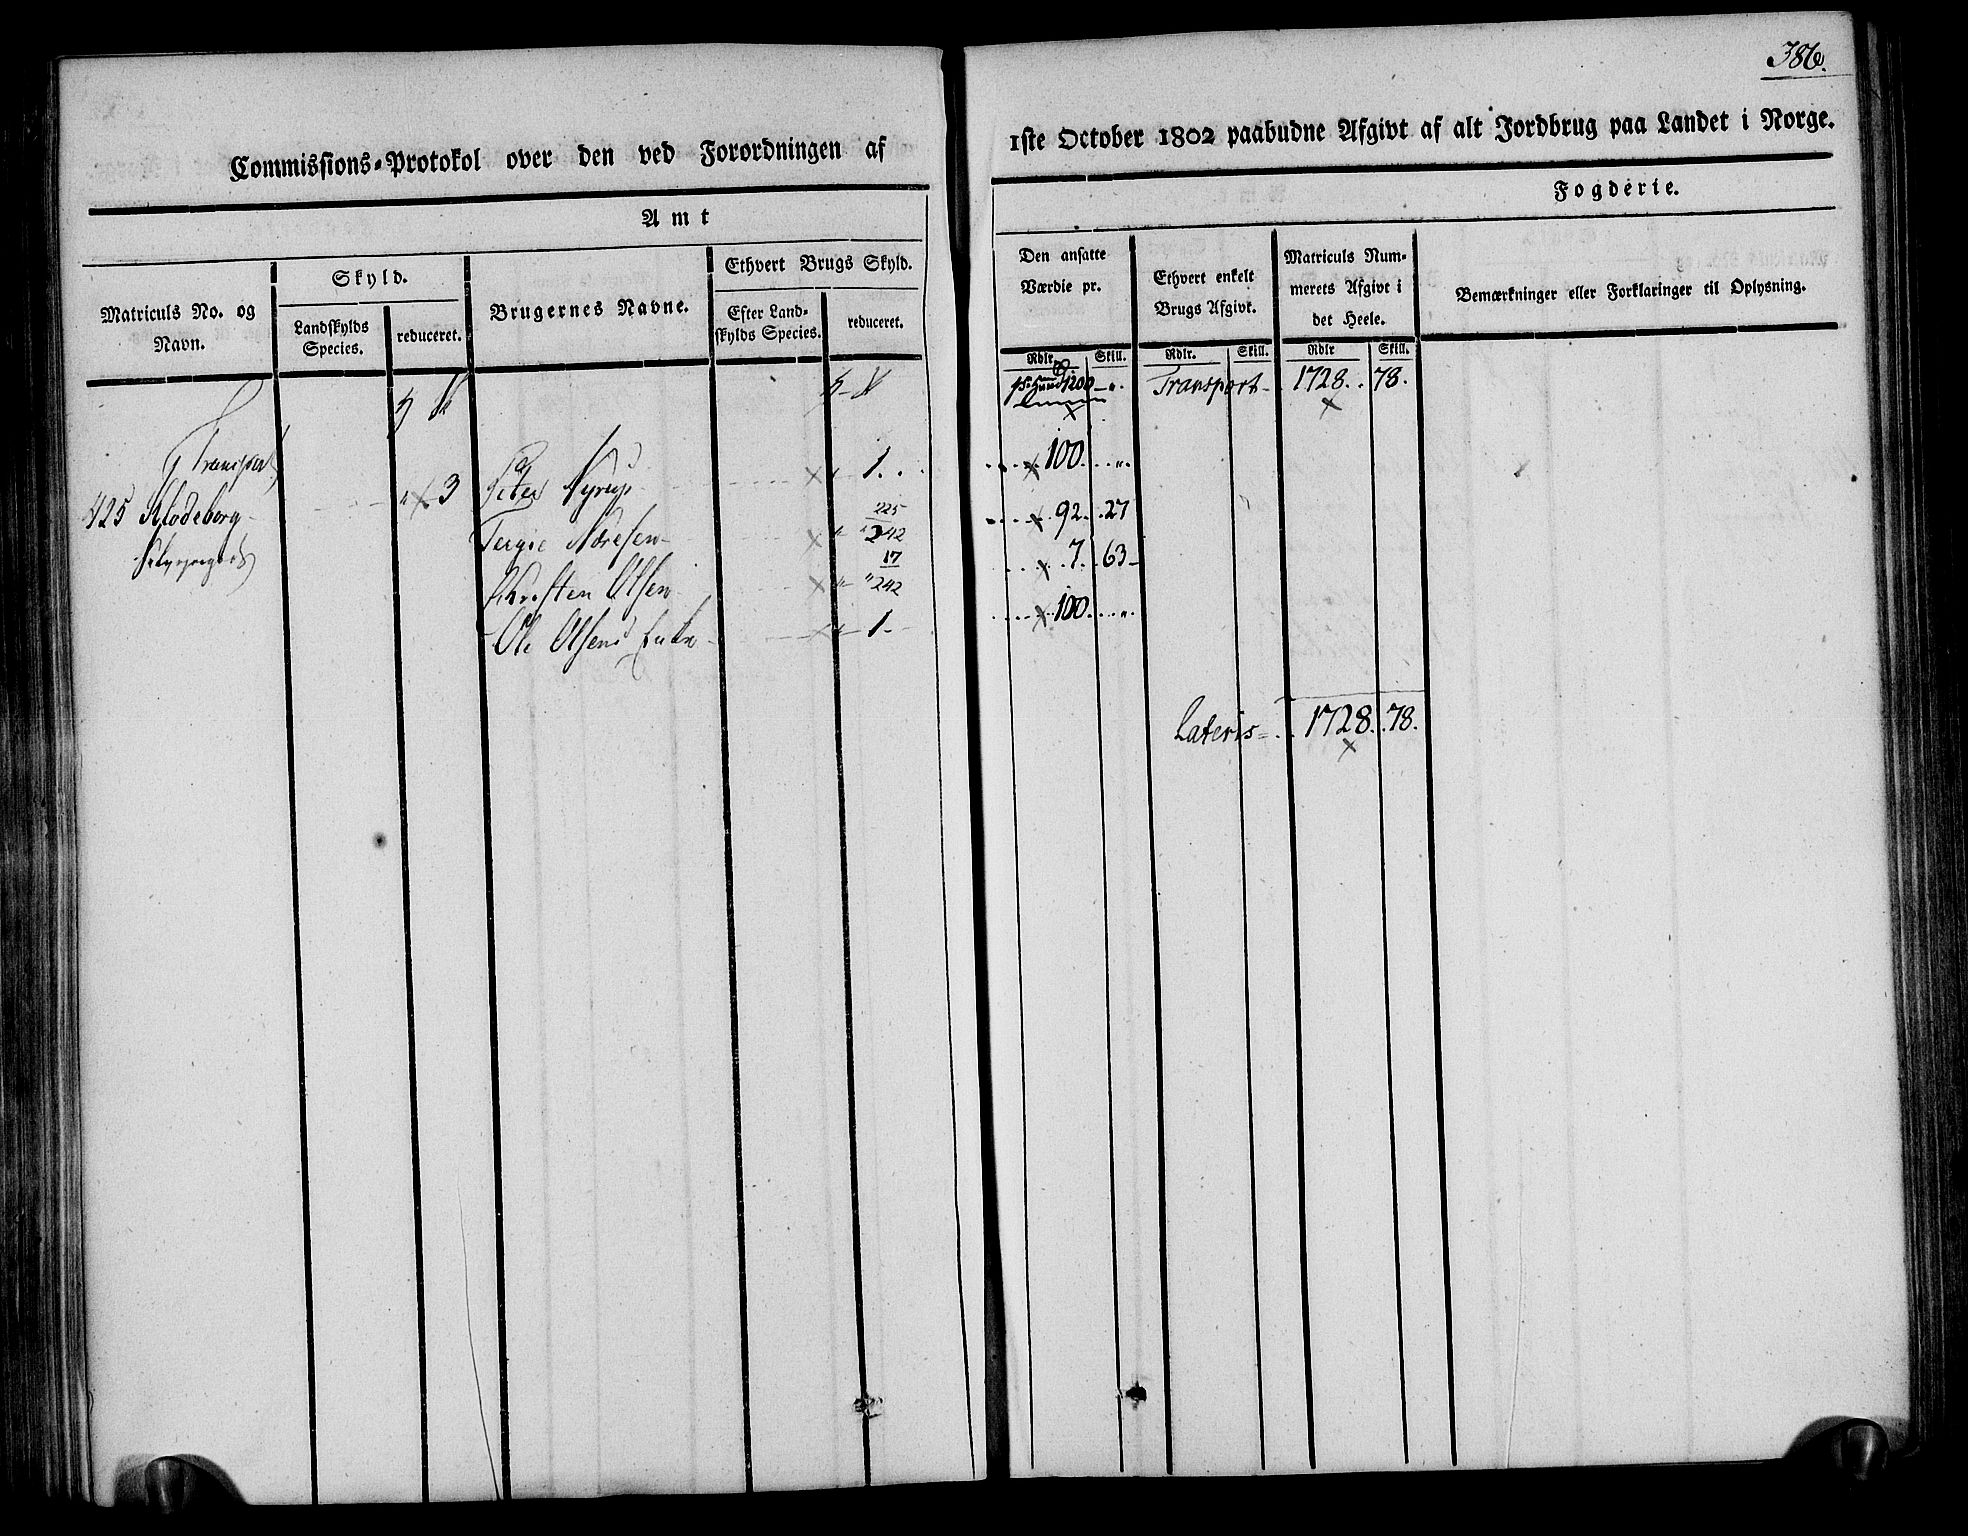 386.
Commissions-Protokol over den ved Forordningen af
1ste October 1802 paabudne Afgivt af alt Jordbrug paa Landet i Norge.
Amt
Fogderie.
Matriculs No. og Navn.
Skyld.
Landskylds Species.
reduceret.
Brugernes Navne.
Ethvert Brugs Skyld.
Efter Landskylds Species.
reduceret.
Den ansatte Værdie pr.
Ethvert enkelt Brugs Afgivt.
Matriculs Nummerets Afgivt i det Heele.
Bemærkninger eller Forklaringer til Oplysning.
Rdlr. Skill.
Rdlr. Skill.
Rdlr Skill.
1200 Transport 1728. 78.
Transport
425 Klodeborg 3 Peter Nyrup 1. 100.
Tergie 225 242 92. 27
Christen Olsen 17 242 7. 63
Ole Olsens Enke 1. 100.
Lateris 1728. 78.